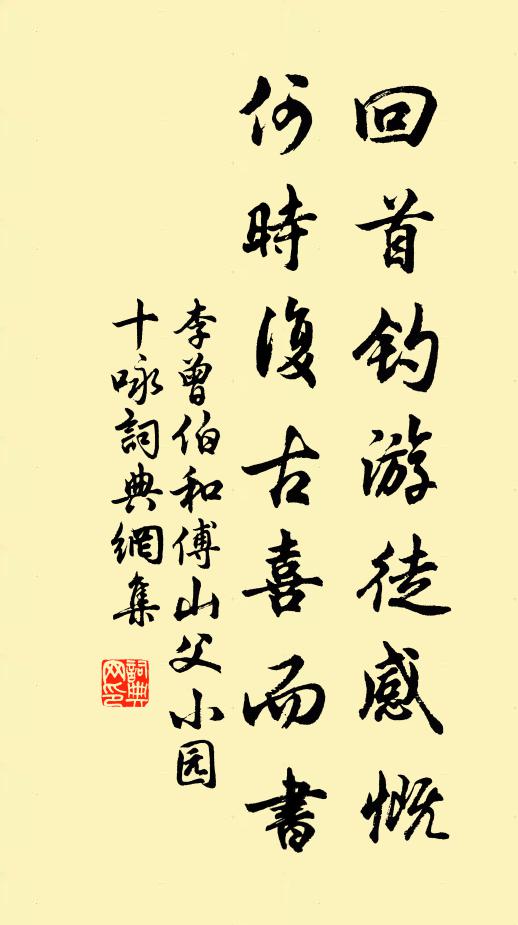 回首钓游徒感慨
何時復古喜而書
李曾伯和傅山父小园
十咏詞典網集
詞典网印